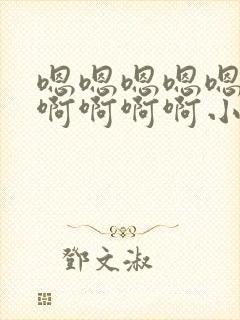 嗯嗯嗯嗯嗯
啊啊啊啊小
鄧文淑